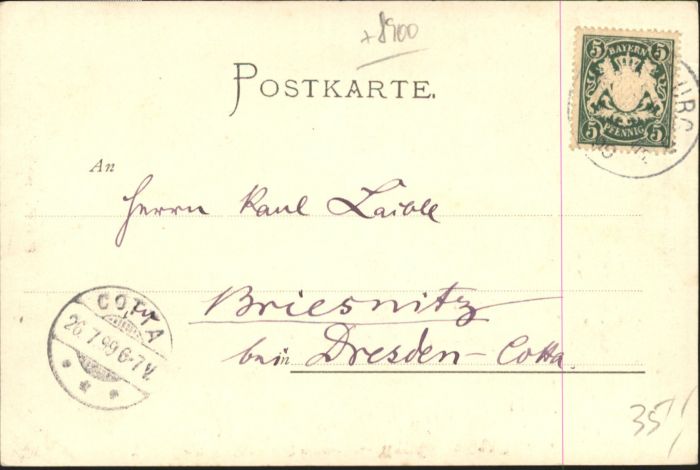 + 8900
POSTKARTE.
5 BAYERN 5
5 PFENNIG 5
BURG
An
Herrn Paul Laible
Briesnitz
bei Dresden-Cotta.
COTTA
26.7.99 6-7V.
35